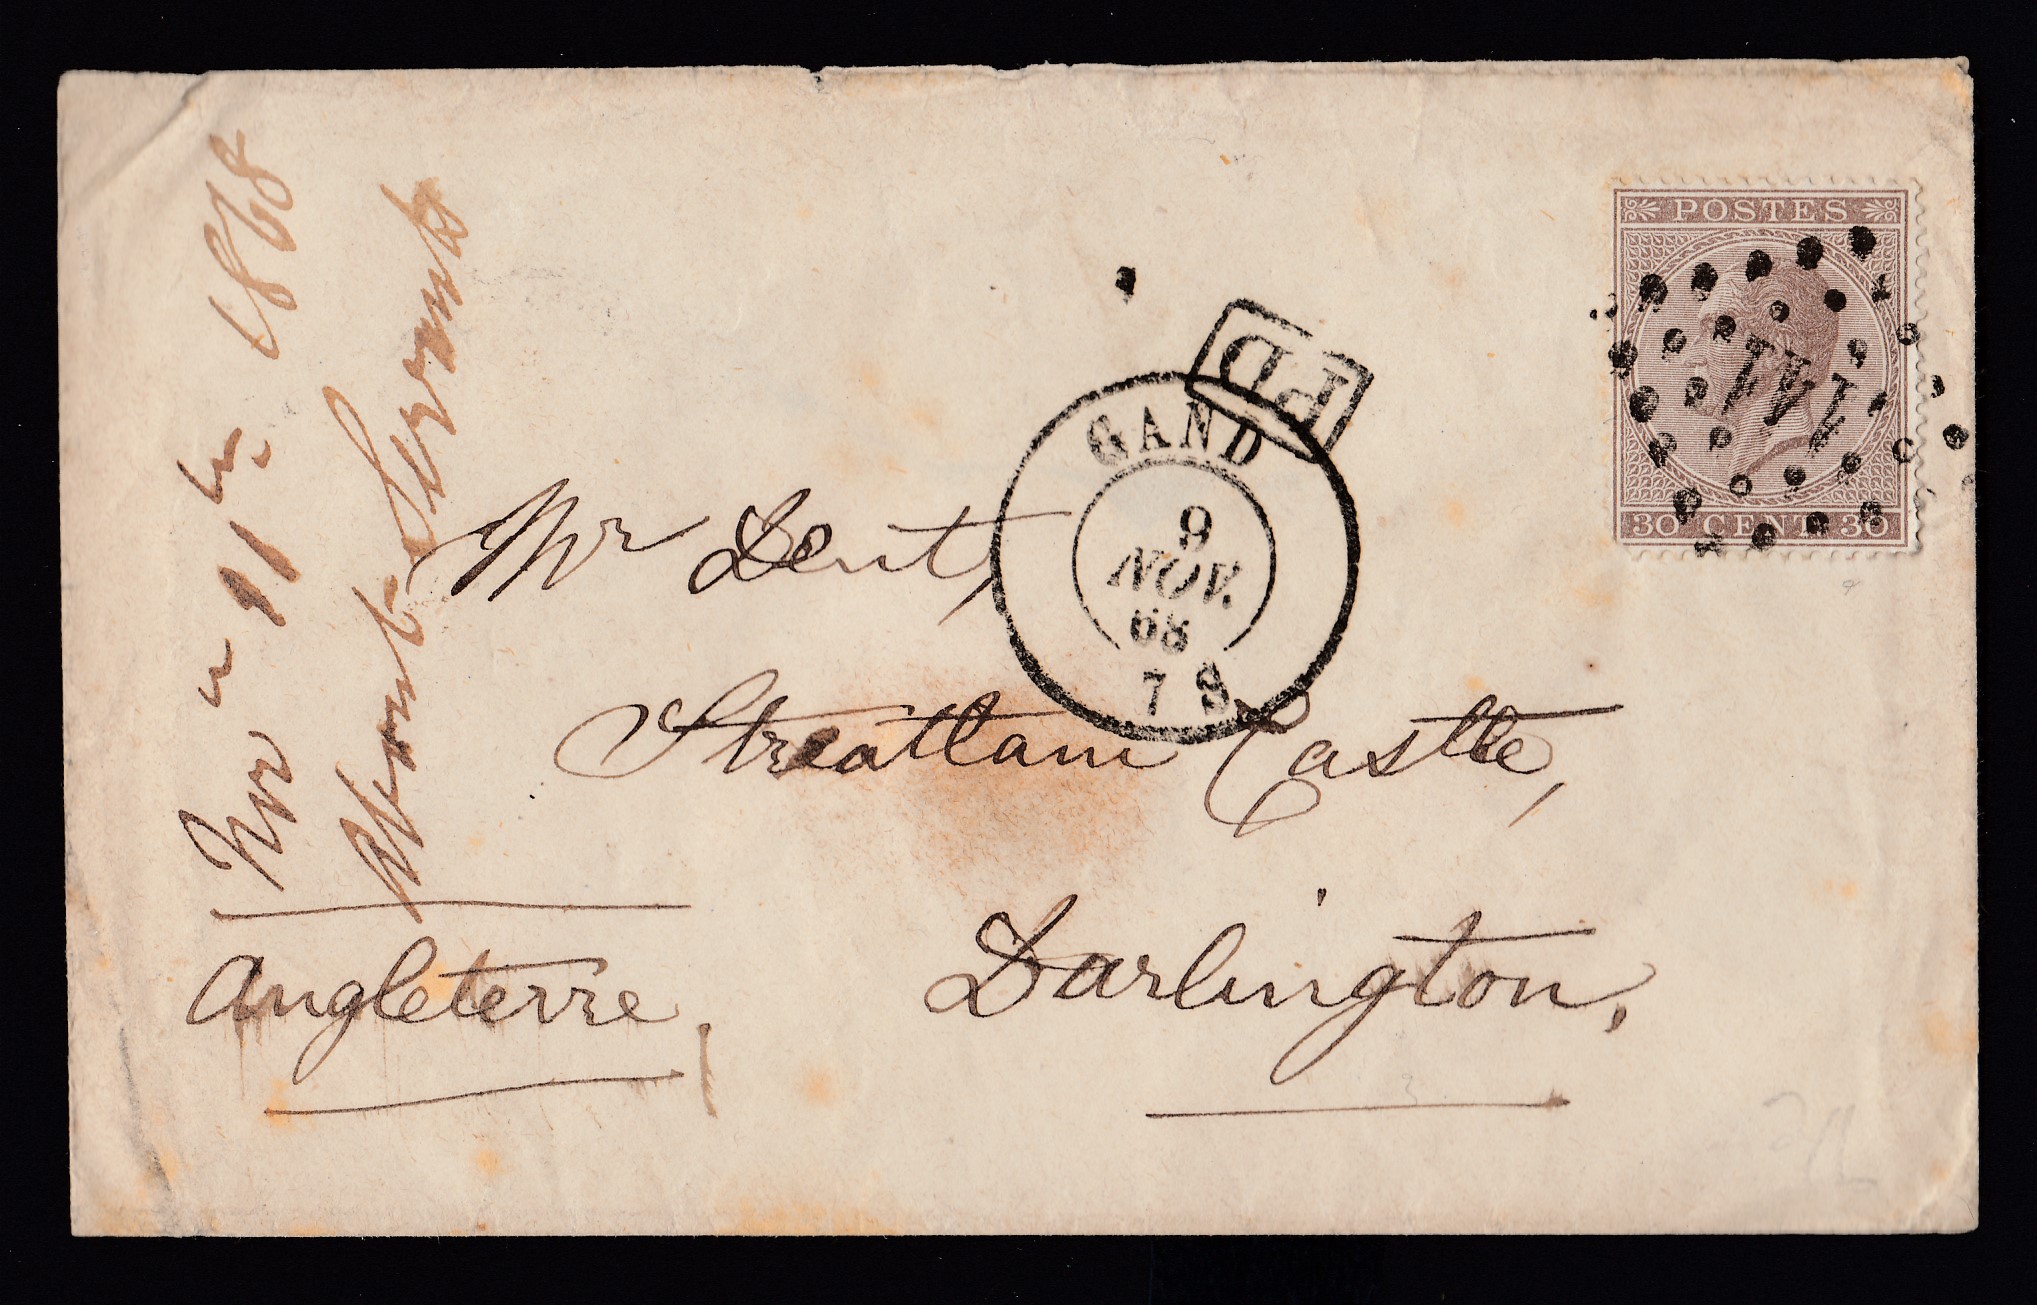 POSTES
30 CENT. 30
141
PD
GAND
9
NOV.
68
7 S
Nov 11th 1868
About Servants
Mr Dent,
Streatlam Castle,
Darlington,
Angleterre,